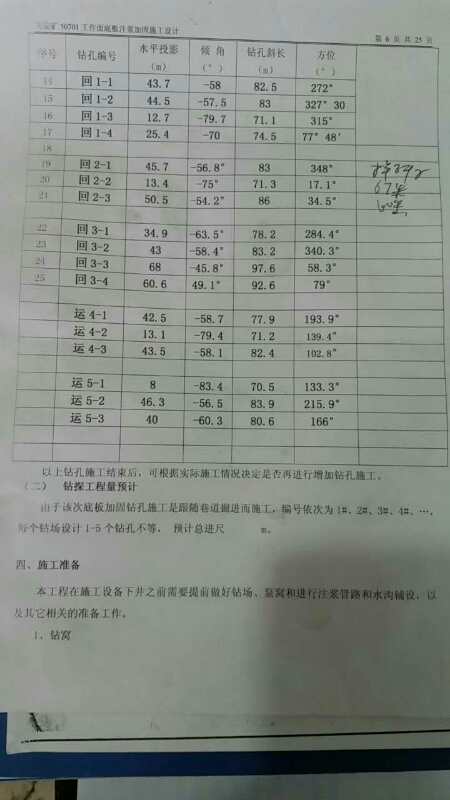 50701工作面底板注浆加固施工设计 第 6 页 共 25 页
序号 钻孔编号 水平投影（m） 倾 角（°） 钻孔斜长（m） 方位（°）
14 回 1-1 43.7 -58 82.5 272°
15 回 1-2 44.5 -57.5 83 327° 30
16 回 1-3 12.7 -79.7 71.1 315°
17 回 1-4 25.4 -70 74.5 77° 48′
18
19 回 2-1 45.7 -56.8° 83 348°
20 回 2-2 13.4 -75° 71.3 17.1°
21 回 2-3 50.5 -54.2° 86 34.5°
22 回 3-1 34.9 -63.5° 78.2 284.4°
23 回 3-2 43 -58.4° 83.2 340.3°
24 回 3-3 68 -45.8° 97.6 58.3°
25 回 3-4 60.6 49.1° 92.6 79°
运 4-1 42.5 -58.7 77.9 193.9°
运 4-2 13.1 -79.4 71.2 139.4°
运 4-3 43.5 -58.1 82.4 102.8°
运 5-1 8 -83.4 70.5 133.3°
运 5-2 46.3 -56.5 83.9 215.9°
运 5-3 40 -60.3 80.6 166°
以上钻孔施工结束后，可根据实际施工情况决定是否再进行增加钻孔施工。
（二） 钻探工程量预计
由于该次底板加固钻孔施工是跟随巷道掘进而施工，编号依次为 1#、2#、3#、4#、…，
每个钻场设计 1-5 个钻孔不等， 预计总进尺 m。
四、施工准备
本工程在施工设备下井之前需要提前做好钻场、泵窝和进行注浆管路和水沟铺设，以
及其它相关的准备工作。
1、钻窝